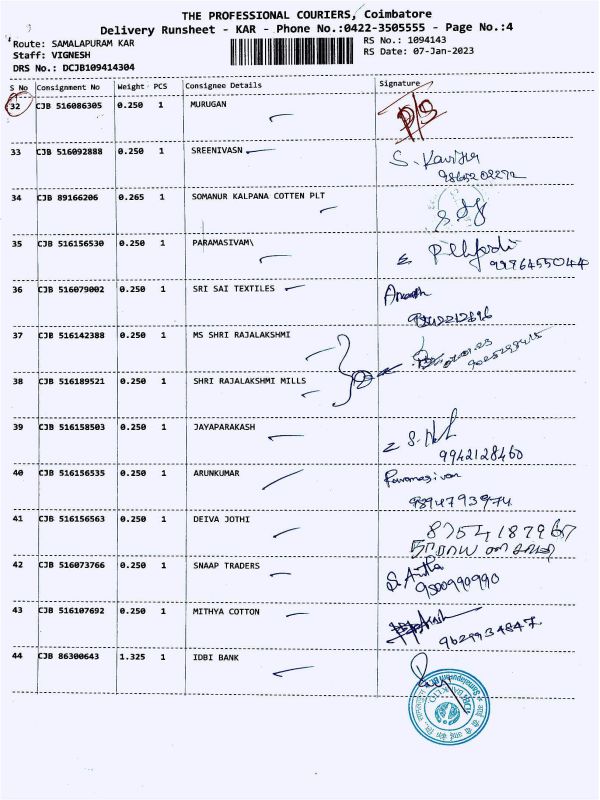 THE PROFESSIONAL COURIERS, Coimbatore
Delivery Runsheet - KAR - Phone No.:0422-3505555 - Page No.:4
Route: SAMALAPURAM KAR
RS No.: 1094143
Staff: VIGNESH
RS Date: 07-Jan-2023
DRS No.: DCJB109414304
S No Consignment No Weight PCS Consignee Details Signature
32 CJB 516086305 0.250 1 MURUGAN P/S
33 CJB 516092888 0.250 1 SREENIVASN S. Kavitha
9865202272
34 CJB 89166206 0.265 1 SOMANUR KALPANA COTTEN PLT
35 CJB 516156530 0.250 1 PARAMASIVAM\
9976455044
36 CJB 516079002 0.250 1 SRI SAI TEXTILES
37 CJB 516142388 0.250 1 MS SHRI RAJALAKSHMI
38 CJB 516189521 0.250 1 SHRI RAJALAKSHMI MILLS
39 CJB 516158503 0.250 1 JAYAPARAKASH
9942128460
40 CJB 516156535 0.250 1 ARUNKUMAR Paramasivan
9894793974
41 CJB 516156563 0.250 1 DEIVA JOTHI 8754187967
42 CJB 516073766 0.250 1 SNAAP TRADERS S. Anitha
9500990990
43 CJB 516107692 0.250 1 MITHYA COTTON
9629934847
44 CJB 86300643 1.325 1 IDBI BANK